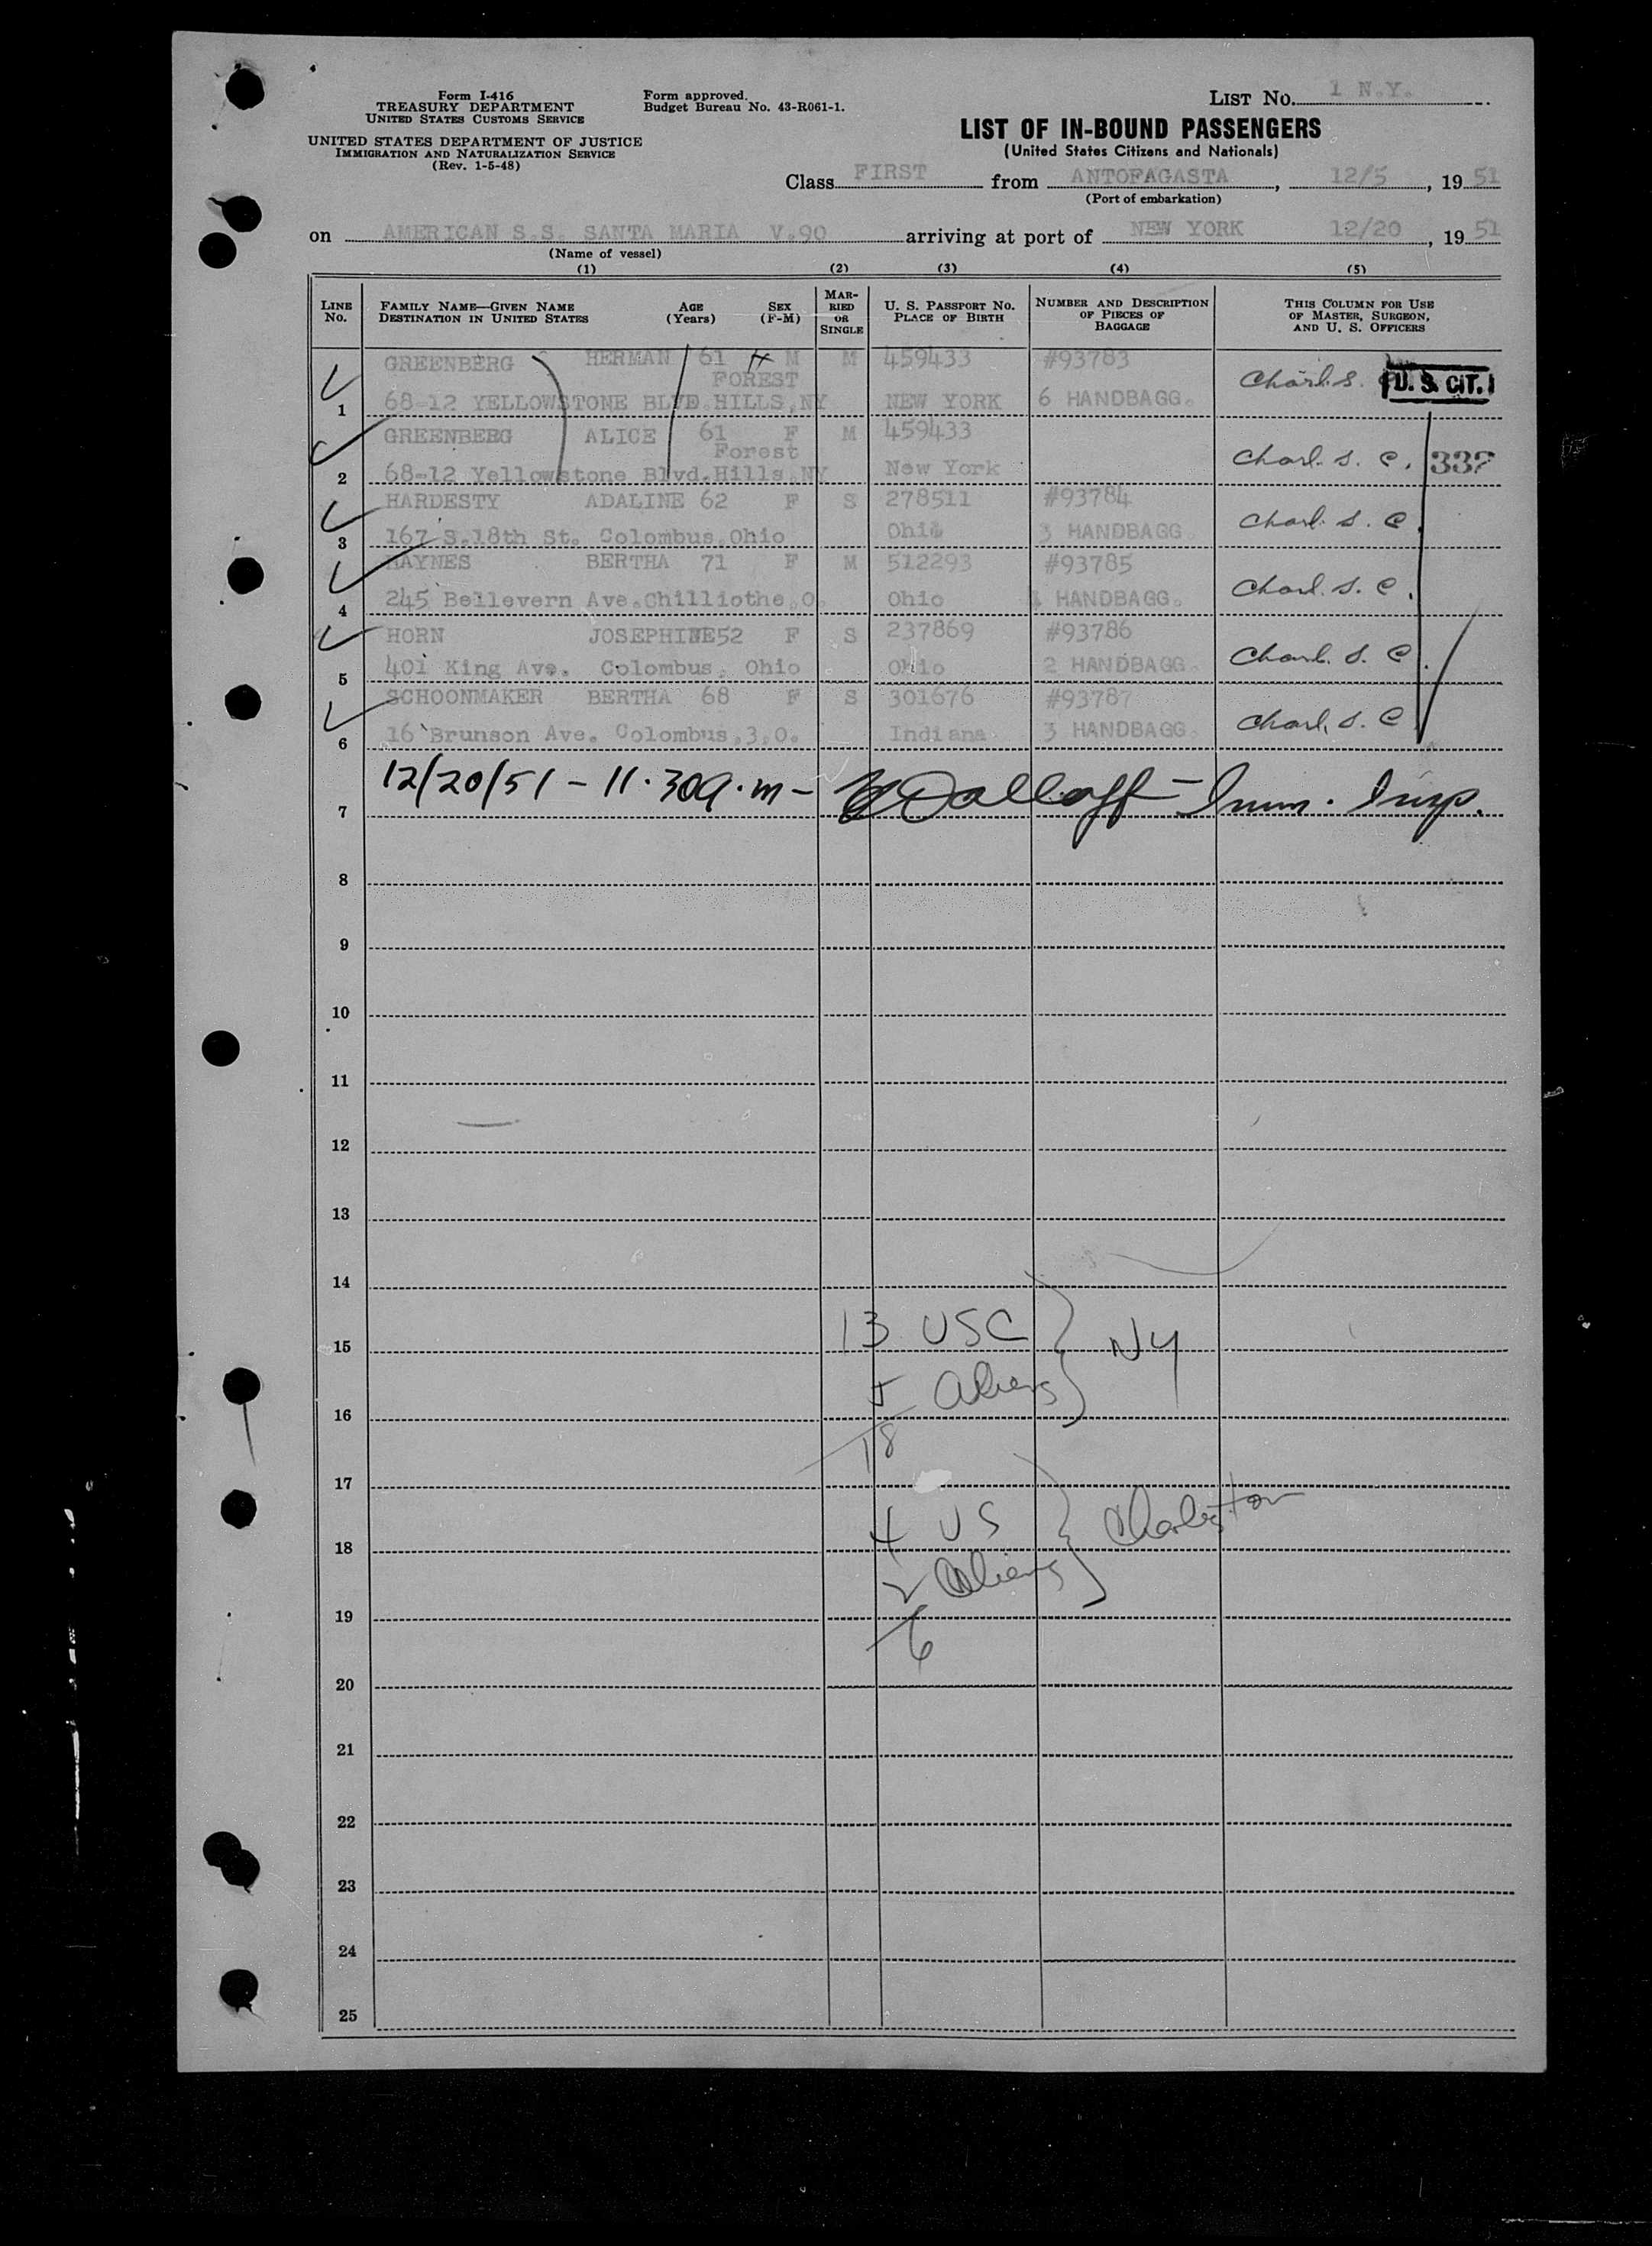 Form I-416
TREASURY DEPARTMENT
UNITED STATES CUSTOMS SERVICE
UNITED STATES DEPARTMENT OF JUSTICE
IMMIGRATION AND NATURALIZATION SERVICE
(Rev. 1-5-48)
Form approved.
Budget Bureau No. 43-R061-1.
LIST NO. 1 N.Y.
LIST OF IN-BOUND PASSENGERS
(United States Citizens and Nationals)
Class FIRST from ANTOFAGASTA, 12/5, 19 51
(Port of embarkation)
on AMERICAN S.S. SANTA MARIA V.90 arriving at port of NEW YORK 12/20, 19 51
(Name of vessel)
(1) (2) (3) (4) (5)
LINE NO. FAMILY NAME—GIVEN NAME DESTINATION IN UNITED STATES AGE (Years) SEX (F-M) MARRIED OR SINGLE U. S. PASSPORT NO. PLACE OF BIRTH NUMBER AND DESCRIPTION OF PIECES OF BAGGAGE THIS COLUMN FOR USE OF MASTER, SURGEON, AND U. S. OFFICERS
GREENBERG HERMAN 61 M M 459433 #93783
FOREST
Charl. S. U. S. CIT.
1 68-12 YELLOWSTONE BLVD.HILLS,NY NEW YORK 6 HANDBAGG.
GREENBERG ALICE 61 F M 459433
Forest
Charl. S. C. 332
2 68-12 Yellowstone Blvd.Hills,NY New York
HARDESTY ADALINE 62 F S 278511 #93784
Charl. S. C.
3 167 S.18th St. Colombus,Ohio Ohio 3 HANDBAGG.
HAYNES BERTHA 71 F M 512293 #93785
Charl. S. C.
4 245 Bellevern Ave.Chilliothe,O. Ohio HANDBAGG.
HORN JOSEPHINE 52 F S 237869 #93786
Charl. S. C.
5 401 King Ave. Colombus, Ohio Ohio 2 HANDBAGG.
SCHOONMAKER BERTHA 68 F S 301676 #93787
Charl. S. C.
6 16 Brunson Ave. Colombus,3,O. Indiana 3 HANDBAGG.
7 12/20/51 - 11.30a.m - Imm. Insp.
8
9
10
11
12
13
14
15 13 USC NY
16 5 Aliens
18
17
18 4 US Charleston
2 Aliens
19
6
20
21
22
23
24
25